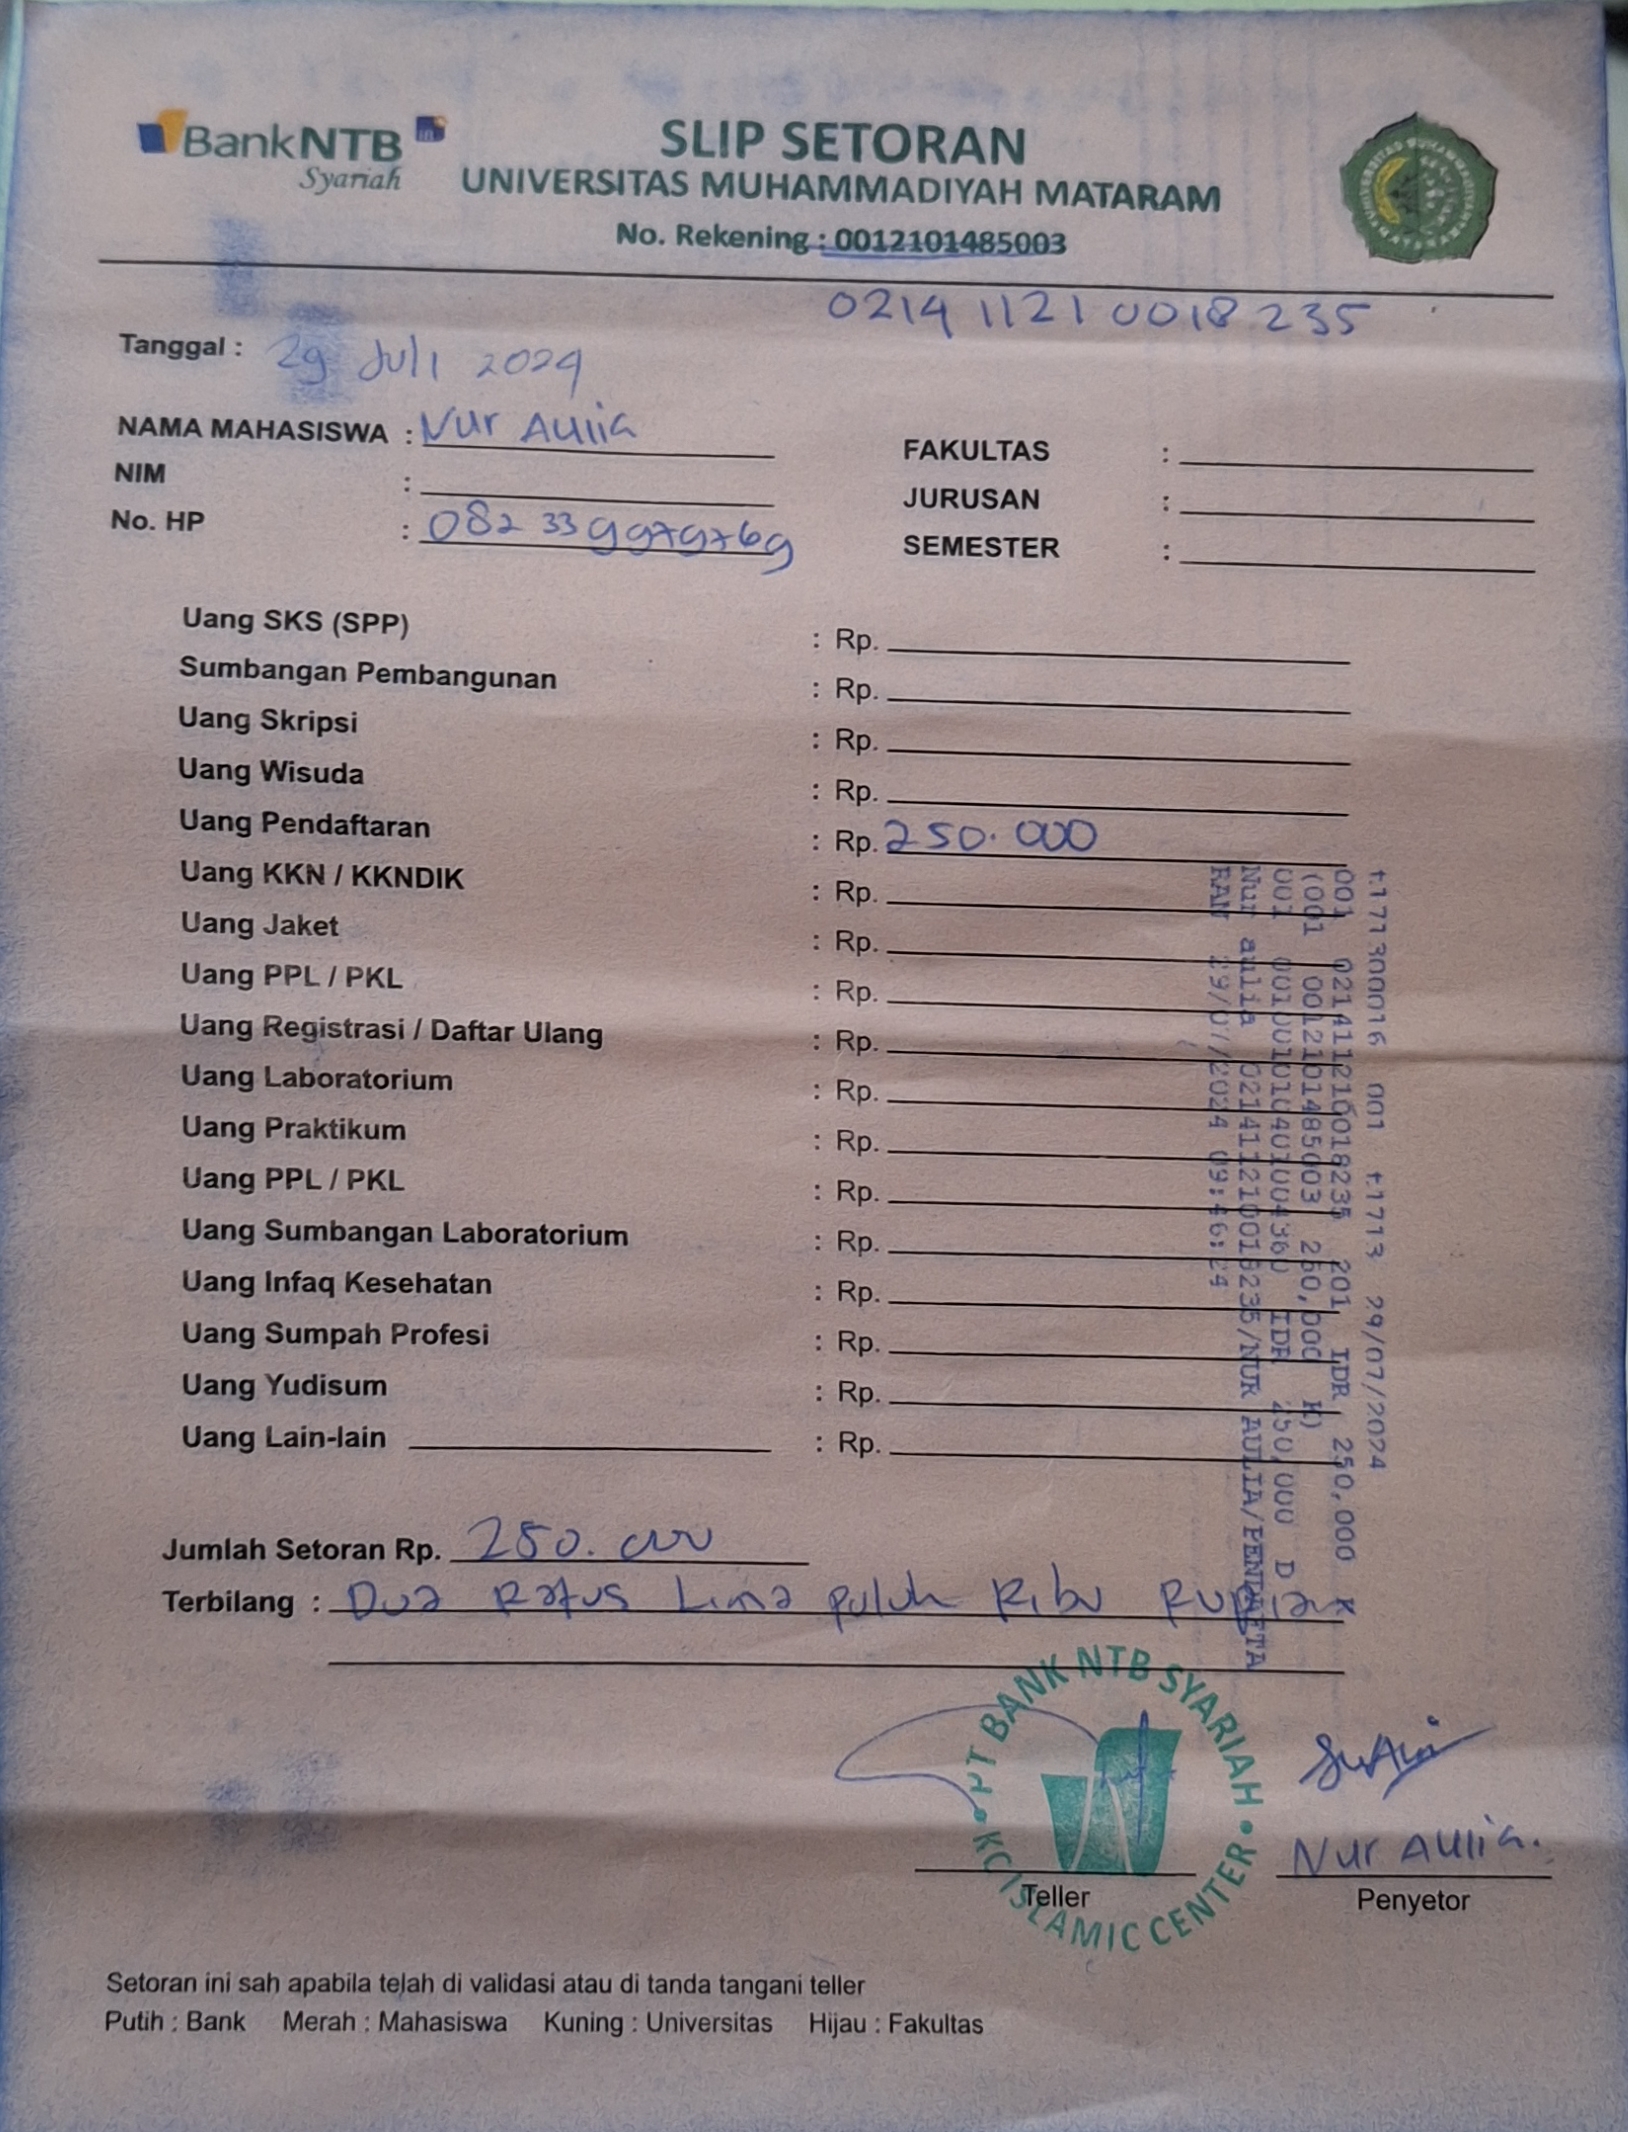 BankNTB
Syariah
SLIP SETORAN
UNIVERSITAS MUHAMMADIYAH MATARAM
No. Rekening : 0012101485003
021411210018235
Tanggal : 29 Juli 2024
NAMA MAHASISWA : Nur Aulia
NIM :
No. HP :
FAKULTAS :
JURUSAN :
SEMESTER :
Uang SKS (SPP) : Rp.
Sumbangan Pembangunan : Rp.
Uang Skripsi : Rp.
Uang Wisuda : Rp.
Uang Pendaftaran : Rp. 250.000
Uang KKN / KKNDIK : Rp.
Uang Jaket : Rp.
Uang PPL / PKL : Rp.
Uang Registrasi / Daftar Ulang : Rp.
Uang Laboratorium : Rp.
Uang Praktikum : Rp.
Uang PPL / PKL : Rp.
Uang Sumbangan Laboratorium : Rp.
Uang Infaq Kesehatan : Rp.
Uang Sumpah Profesi : Rp.
Uang Yudisum : Rp.
Uang Lain-lain : Rp.
001 29/07/2024
001 021411210018235 201 IDR 250,000 K
(001 0012101485003 250,000 K)
001 IDR 250,000 D
Nur aulia 021411210018235/NUR AULIA/PENDAFTA
RAN 29/07/2024 09:46:24
Jumlah Setoran Rp. 250.000
Terbilang : Dua Ratus Lima puluh Ribu Rupiah
PT BANK NTB SYARIAH
KC ISLAMIC CENTER
Nur Aulia.
Teller
Penyetor
Setoran ini sah apabila telah di validasi atau di tanda tangani teller
Putih : Bank Merah : Mahasiswa Kuning : Universitas Hijau : Fakultas